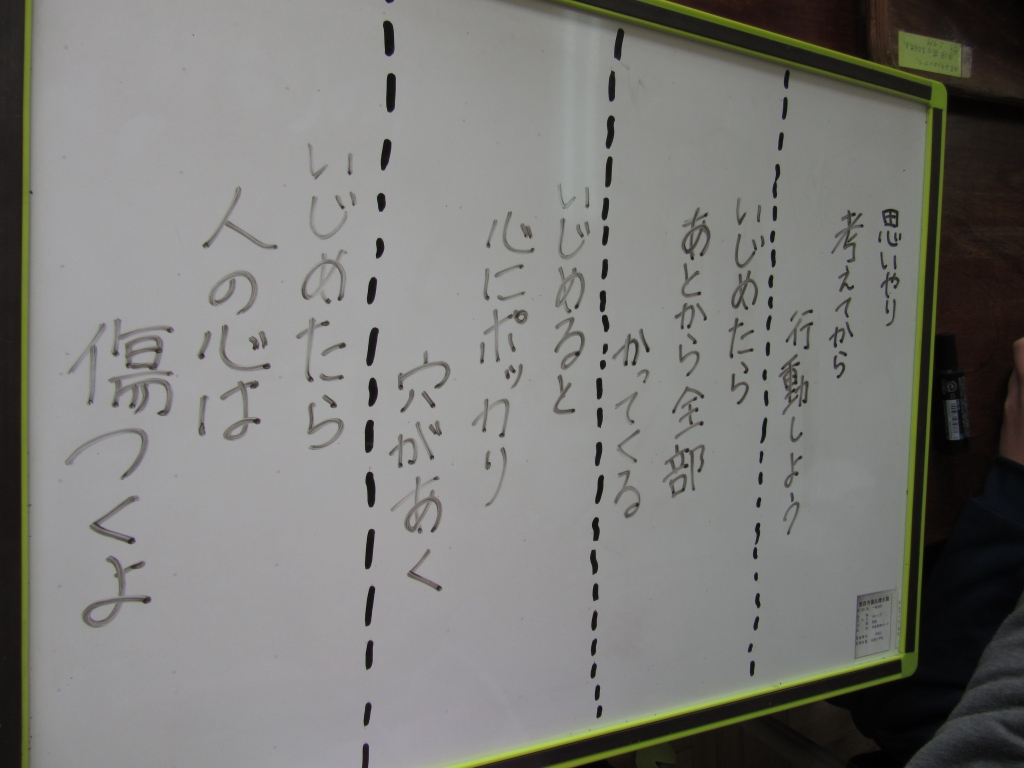 思いやり
考えてから
行動しよう
いじめたら
あとから全部
かってくる
いじめると
心にポッカリ
穴があく
いじめたら
人の心は
傷つくよ